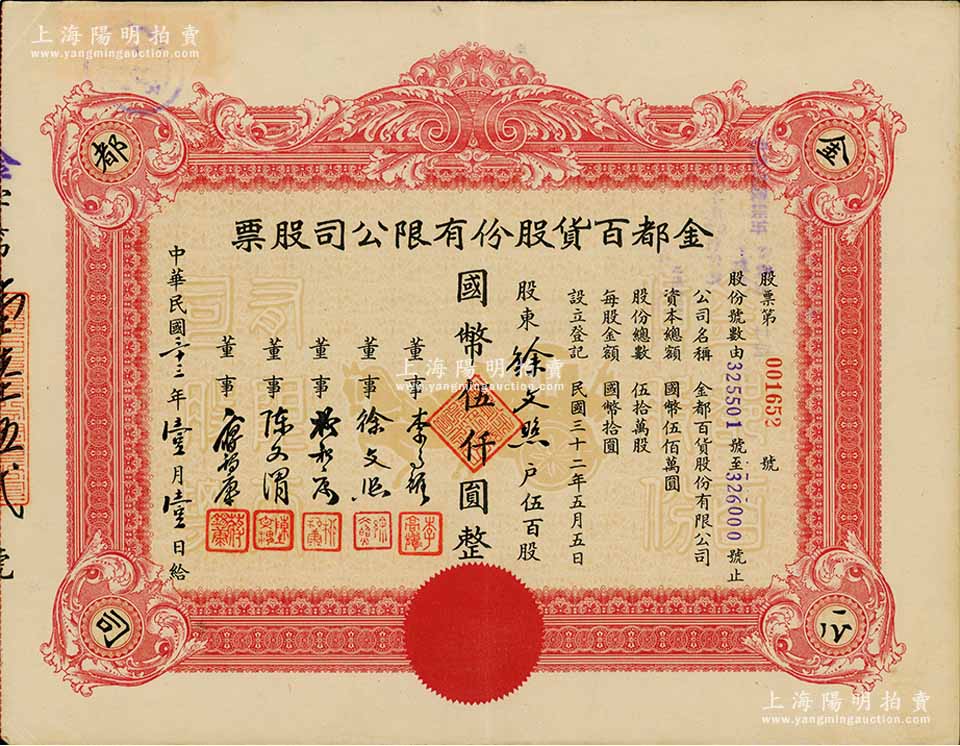 上海陽明拍賣
www.yangmingauction.com
金都公司
金都百貨股份有限公司股票
股票第 001652 號
股份號數由325501號至326000號止
公司名稱 金都百貨股份有限公司
資本總額 國幣伍佰萬圓
股份總數 伍拾萬股
每股金額 國幣拾圓
設立登記 民國三十二年五月五日
股東徐文照戶伍百股
國幣伍仟圓整
董事
董事 徐文照
董事
董事 陈文渭
董事
中華民國三十三年壹月壹日給
上海陽明拍賣
www.yangmingauction.com
上海陽明拍賣
www.yangmingauction.com